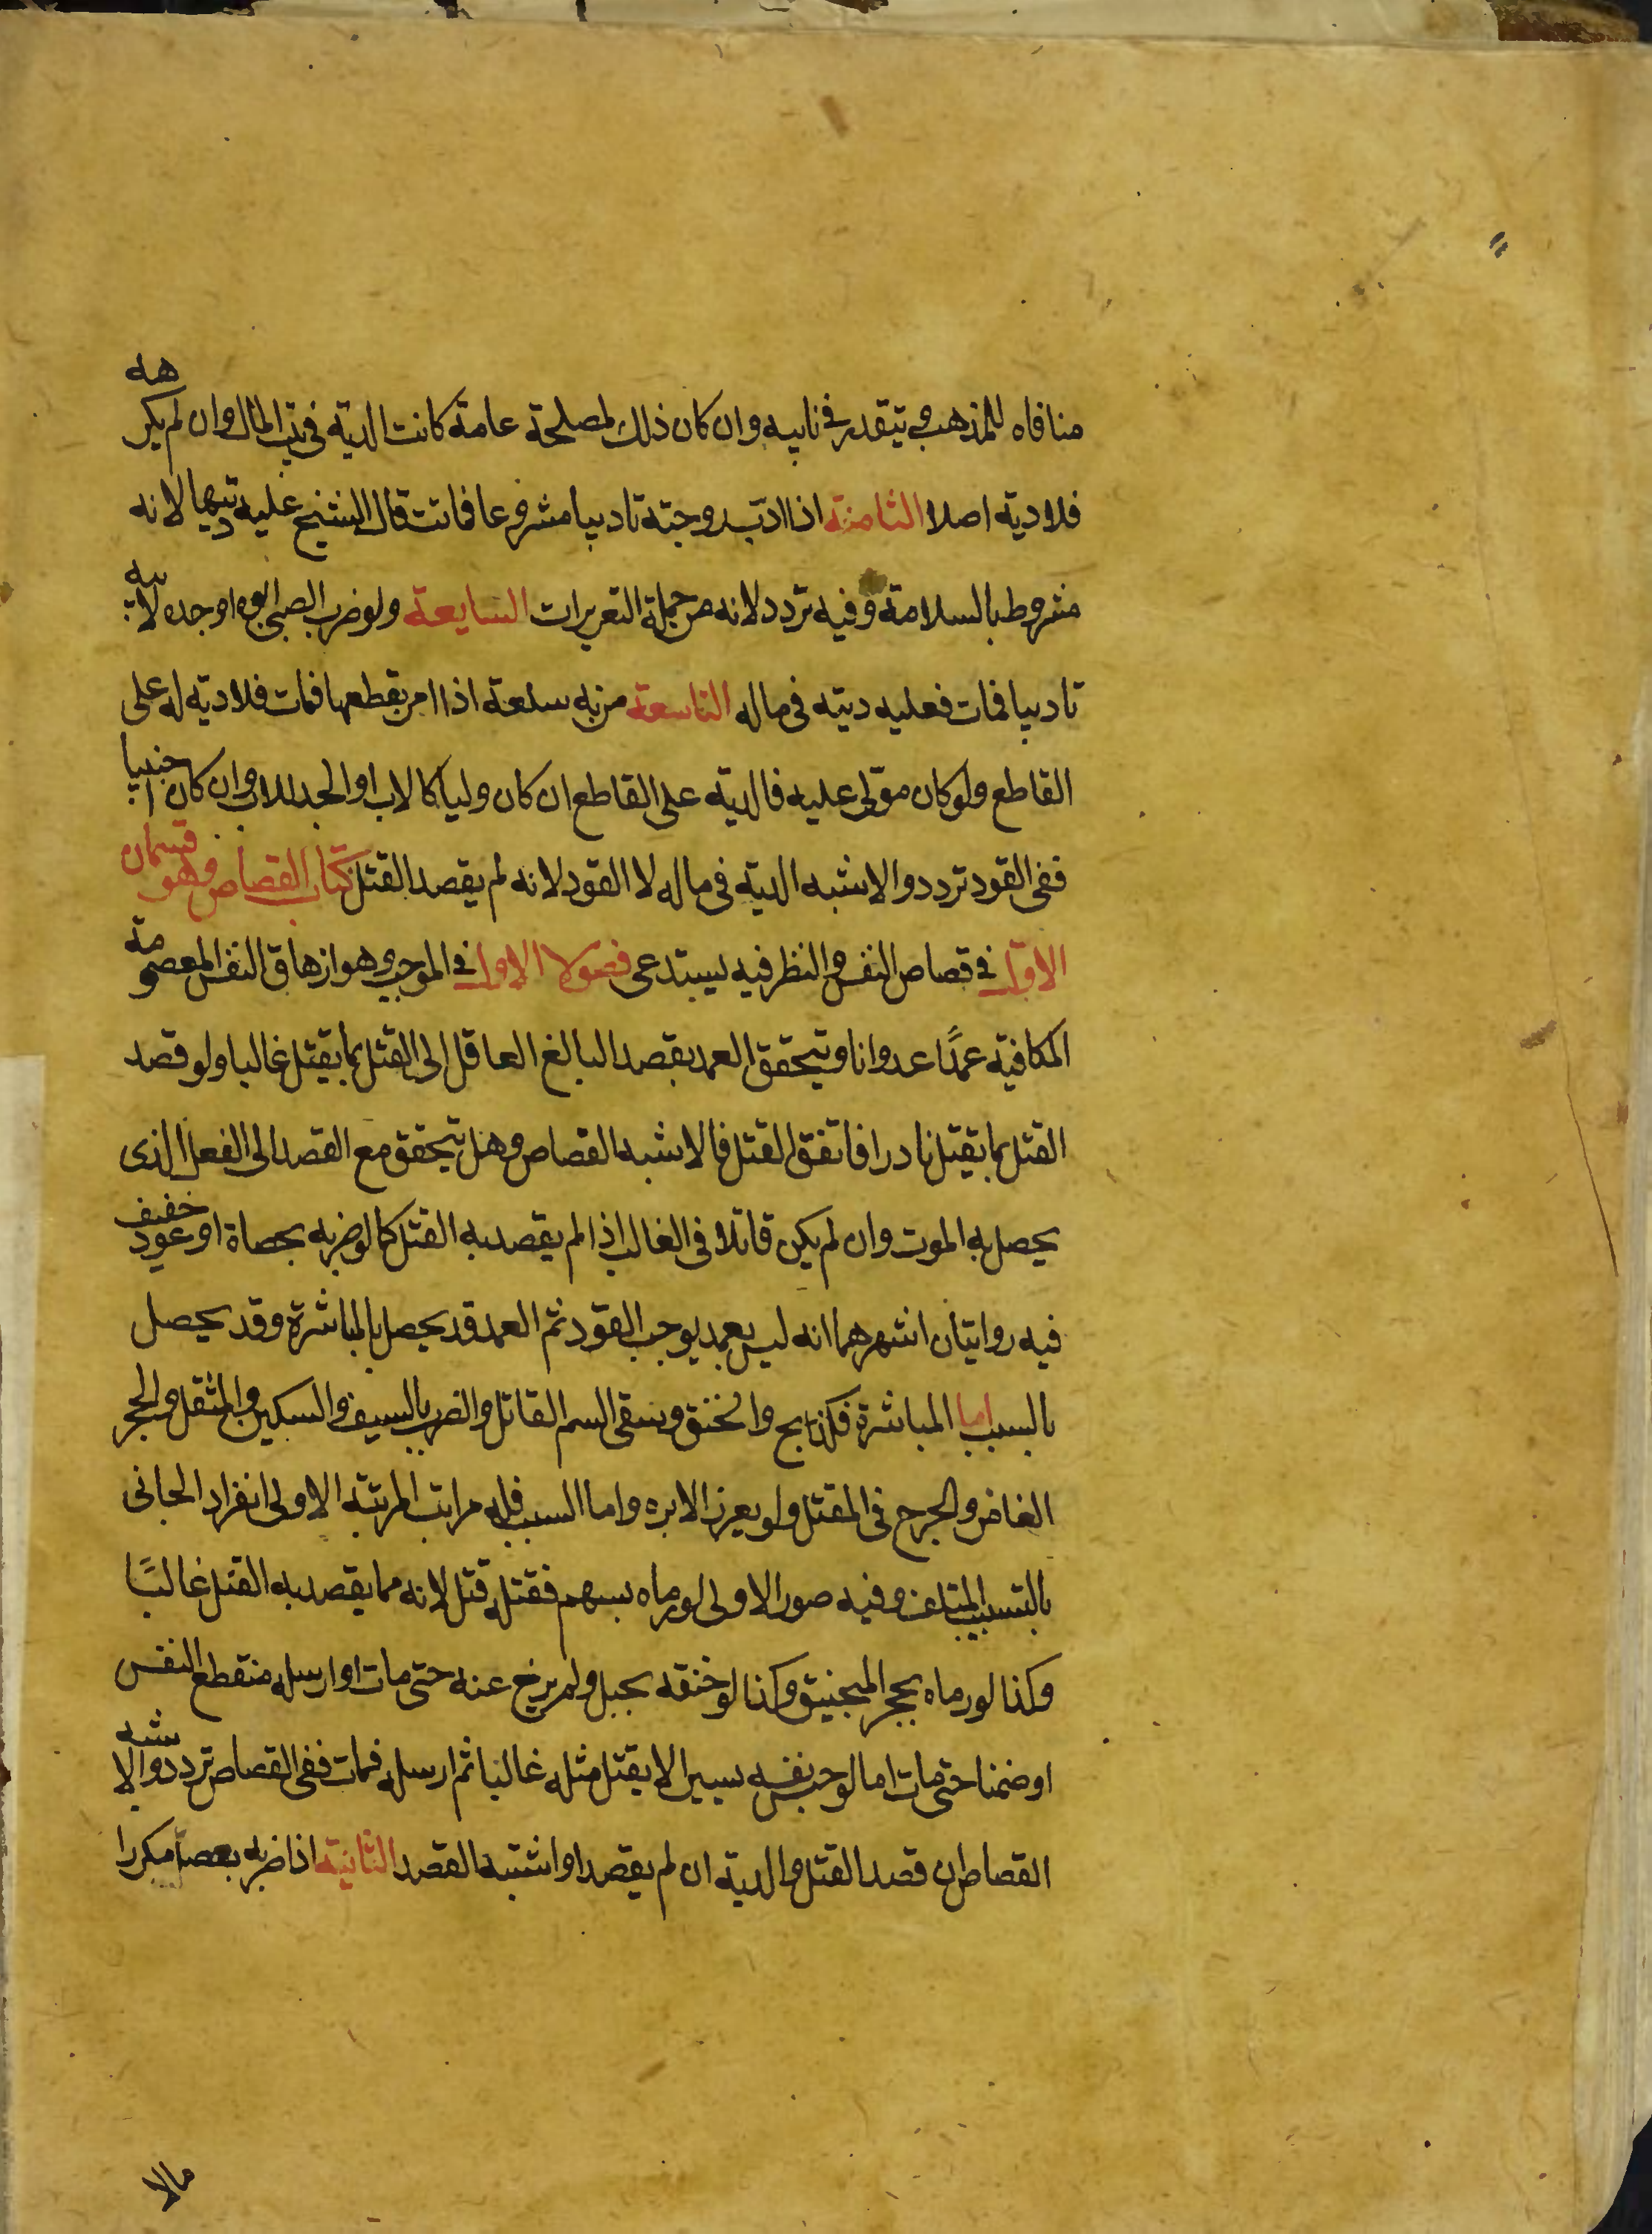 منافاه للمذهب ويتقدر في نايبه وان كان ذلك لمصلحة عامة كانت الدية في بيت المال وان لم يكن هه
فلا دية اصلا الثامنة اذا ادب زوجته تاديبا مشروعا فماتت قال الشيخ عليه ديتها لانه
مشروط بالسلامة وفيه تردد لانه من جملة التعزيرات السايعة ولو ضرب الصبي ابوه او جده لابيه
تاديبا فمات فعليه ديته في ماله التاسعة من به سلعة اذا امر بقطعها فمات فلا دية له على
القاطع ولو كان مولى عليه فالدية على القاطع ان كان وليا كالاب او الجد للاب وان كان اجنبيا
ففي القود تردد والاشبه الدية في ماله لا القود لانه لم يقصد القتل كتاب القصاص وهو قسمان
الاول في قصاص النفس والنظر فيه يستدعي فصولا الاول في الموجب وهو ازهاق النفس المعصومة
المكافية عمدًا عدوانا ويتحقق العمد بقصد البالغ العاقل الى القتل بما يقتل غالبا ولو قصد
القتل بما يقتل نادرا فاتفق القتل فالاشبه القصاص وهل يتحقق مع القصد الى الفعل الذي
يحصل به الموت وان لم يكن قاتلا في الغالب اذا لم يقصد به القتل كما لو ضربه بحصاة او عود خفيف
فيه روايتان اشهرهما انه ليس بعمد يوجب القود ثم العمد قد يحصل بالمباشرة وقد يحصل
بالسبب اما المباشرة فكالذبح والخنق وسقي السم القاتل والضرب بالسيف والسكين والمثقل والحجر
الغامز والجرح في المقتل ولو بغرز الابره واما السبب فله مراتب المرتبة الاولى انفراد الجاني
بالتسبيب المتلف وفيه صور الاولى لو رماه بسهم فقتله قتل لانه مما يقصد به القتل غالبًا
وكذا لو رماه بحجر المنجنيق وكذا لو خنقه بحبل ولم يرخ عنه حتى مات او ارسله منقطع النفس
او ضمنا حتى مات اما لو حبس نفسه يسيرا لا يقتل مثله غالبا ثم ارسله فمات ففي القصاص تردد والاشبه
القصاص ان قصد القتل والدية ان لم يقصد او اشتبه القصد الثانية اذا ضربه بعصا مكررا
مالا